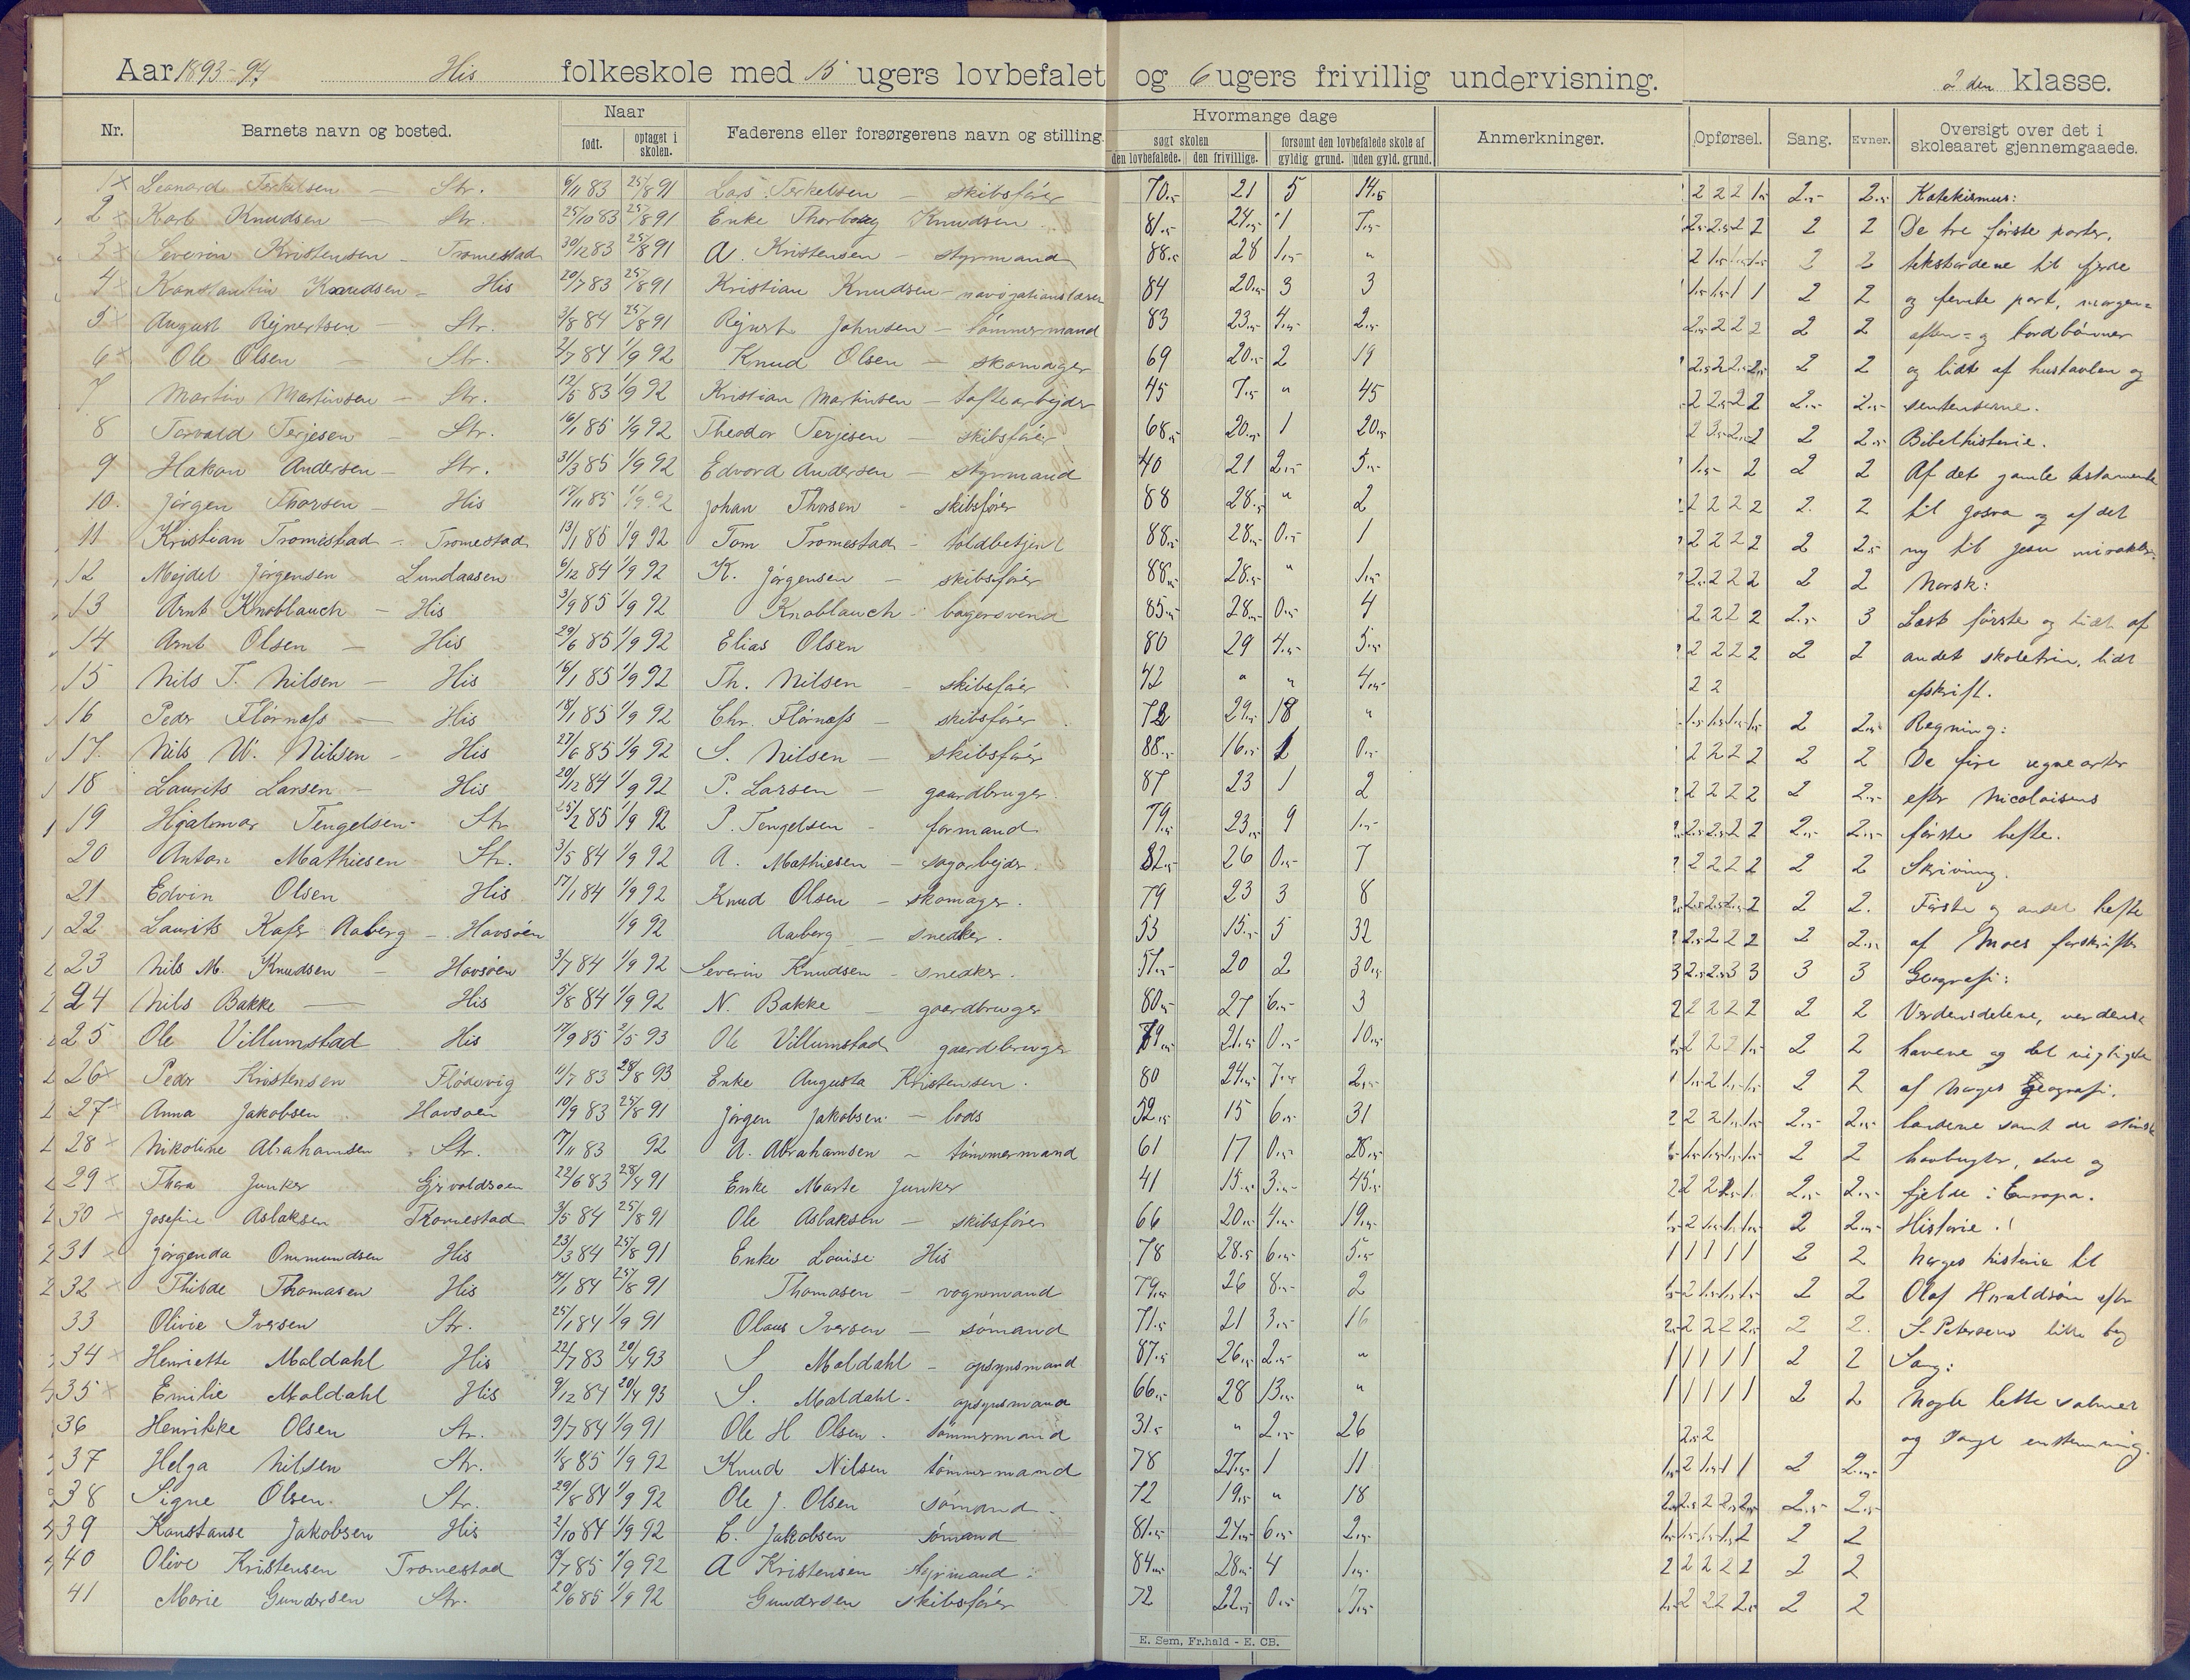 Aar 1893-94 His folkeskole med 15 ugers lovbefalet og 6 ugers frivillig undervisning. 2den klasse.
Nr. Barnets navn og bosted. Naar født. optaget i skolen. Faderens eller forsørgerens navn og stilling. Hvormange dage søgt skolen den lovbefalede. den frivillige. forsømt den lovbefalede skole af gyldig grund. uden gyld. grund. Anmerkninger. Opførsel. Sang. Evner. Oversigt over det i skoleaaret gjennemgaaede.
1 Leonard Terkelsen — Str. 6/11 83 25/8 91 Lars Terkelsen — skibsfører 70.5 21 5 14.5 Katekismus:
2 Karl Knudsen — Str. 25/10 83 25/8 91 Enke Thorborg Knudsen 81.5 24.5 1 7.5 2 2 De tre første parter,
3 Severin Kristensen — Tromestad 30/12 83 25/8 91 A. Kristensen — styrmand 88.5 28 1.5 " 2 2 tekstordene til fjerde
4 Konstantin Knudsen — His 20/7 83 25/8 91 Kristian Knudsen — navigationslærer 84 20.5 3 3 2 2 og femte part, morgen=
5 August Rejnertsen — Str. 3/8 84 25/8 91 Rejnert Johnsen — tømmermand 83 23.5 4.5 2.5 2 2 aften= og bordbønner
6 Ole Olsen — Str. 2/7 84 1/9 92 Knud Olsen — skomager 69 20.5 2 19 2 2 og lidt af hustavlen og
7 Martin Martinsen — Str. 12/5 83 1/9 92 Kristian Martinsen — toftearbejder 45 7.5 " 45 2.5 2.5 sentenserne.
8 Torvald Terjesen — Str. 16/1 85 1/9 92 Theodor Terjesen — skibsfører 68.5 20.5 1 20.5 2 2.5 Bibelhistorie.
9 Hakon Andersen — Str. 31/3 85 1/9 92 Edvard Andersen — styrmand 40 21 2.5 5.5 2 2 Af det gamle testamente
10. Jørgen Thorsen — His 17/11 85 1/9 92 Johan Thorsen - skibsfører 88 28.5 " 2 2 2 til Josva og af det
11 Kristian Tromestad — Tromestad 13/1 85 1/9 92 Tom Tromestad — toldbetjent 88.5 28.5 0.5 1 2 2.5 ny til Jesu mirakler.
12 Mejdel Jørgensen Lundaasen 6/12 84 1/9 92 K. Jørgensen — skibsfører 88.5 28.5 " 1.5 2 2 Norsk:
13 Arnt Knoblauch — His 3/9 85 1/9 92 Knoblauch - bagersvend 85.5 28.5 0.5 4 2.5 3 Læst første og lidt af
14 Arnt Olsen — His 29/6 85 1/9 92 Elias Olsen 80 29 4.5 5.5 2 2 andet skoletrin, lidt
15 Nils T. Nilsen — His 16/1 85 1/9 92 Th. Nilsen — skibsfører 42 " " 4.5 afskrift.
16 Peder Flørnæss — His 18/1 85 1/9 92 Chr. Flørnæss — skibsfører 72 29.5 18 " 2 2.5 Regning:
17. Nils W. Nilsen — His 27/6 85 1/9 92 S. Nilsen — skibsfører 88.5 16.5 1 0.5 2 2 De fire regnearter
18 Laurits Larsen — His 20/12 84 1/9 92 P. Larsen — gaardbruger. 87 23 1 2 2 2.5 efter Nicolaisens
19 Hjalmar Tengelsen — Str. 25/2 85 1/9 92 P. Tengelsen — formand 79.5 23.5 9 1.5 2.5 2.5 første hefte.
20 Anton Mathiesen Str. 3/5 84 1/9 92 A. Mathiesen — sagarbejder 82.5 26 0.5 7 2 2 Skrivning.
21 Edvin Olsen His 17/1 84 1/9 92 Knud Olsen — skomager. 79 23 3 8 2 2. Første og andet hefte
22 Laurits Kafr Aaberg — Havsøen 1/9 92 Aaberg — snedker. 53 15.5 5 32 2 2.5 af Moes forskrifter
23 Nils M. Knudsen — Havsøen 3/7 84 1/9 92 Severin Knudsen — snedker. 51.5 20 2 30.5 3 3 Geografi:
24 Nils Bakke — His 5/8 84 1/9 92 N. Bakke — gaardbruger 80.5 27 6.5 3 2 2 Verdensdelene, verdens=
25 Ole Villumstad His 14/9 85 2/5 93 Ole Villumstad gaardbruger 79.5 21.5 0.5 10.5 2 2 havene og det vigtigste
26 Peder Kristensen Flødevig 11/7 83 28/8 93 Enke Augusta Kristensen. 80 24.5 7.5 2.5 2 2 af Norges Geografi.
27 Anna Jakobsen Havsøen 10/9 83 25/8 91 Jørgen Jakobsen — lods 52.5 15 6.5 31 2.5 2.5 landene samt de største
28 Nikoline Abrahamsen Str. 17/11 83 92 A. Abrahamsen — tømmermand 61 17 0.5 28.5 2 2 havbugter, elve og
29 Thea Junker Gjervoldsøen 22/6 83 28/4 91 Enke Marte Junker 41 15.5 3.5 45.5 2.5 2.5 fjelde i Europa.
30 Josefine Aslaksen Tromestad 3/5 84 25/8 91 Ole Aslaksen — skibsfører 66 20.5 4.5 19.5 2 2.5 Historie.
31 Jørgenda Ommundsen His 23/3 84 25/8 91 Enke Louise His 78 28.5 6.5 5.5 2 2 Norges historie til
32 Thilde Thomasen His 14/1 84 25/8 91 Thomasen — vognmand 79.5 26 8.5 2 2 2 Olaf Haraldsøn efter
33 Olivie Iversen Str. 25/1 84 1/9 91 Olaus Iversen — sømand 71.5 21 3.5 16 2 2. S. Petersens lille bog
34 Henriette Moldahl His 22/7 83 20/4 93 S Moldahl — opsynsmand 87.5 26.5 2.5 " 2 2 Sang:
35 Emilie Moldahl His 9/12 84 20/4 93 S. Moldahl — opsynsmand 66.5 28 13.5 " 2 2 Nogle lette salmer
36 Henrikke Olsen Str. 9/7 84 1/9 91 Ole H Olsen. tømmermand 31.5 " 2.5 26 og sange enstemmig.
37 Helga Nilsen Str. 1/8 85 1/9 92 Knud Nilsen tømmermand 78 27.5 1 11 2 2.5
38 Signe Olsen. Str. 29/8 84 1/9 92 Ole J. Olsen sømand. 72 19.5 " 18 2.5 2.5
39 Konstanse Jakobsen His 2/10 84 1/9 92 C. Jakobsen sømand 81.5 24.5 6.5 2.5 2 2
40 Olive Kristensen Tromestad 14/7 85 1/9 92 A Kristensen styrmand 84.5 28.5 4 1.5 2 2
41 Marie Gundersen Str. 20/6 85 1/9 92 Gundersen skibsfører 72 22.5 0.5 17.5 2 2
E. Sem, Fr.hald - E. CB.